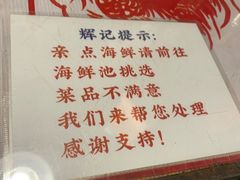 辉记提示：
亲点海鲜请前往
海鲜池挑选
菜品不满意
我们来帮您处理
感谢支持！